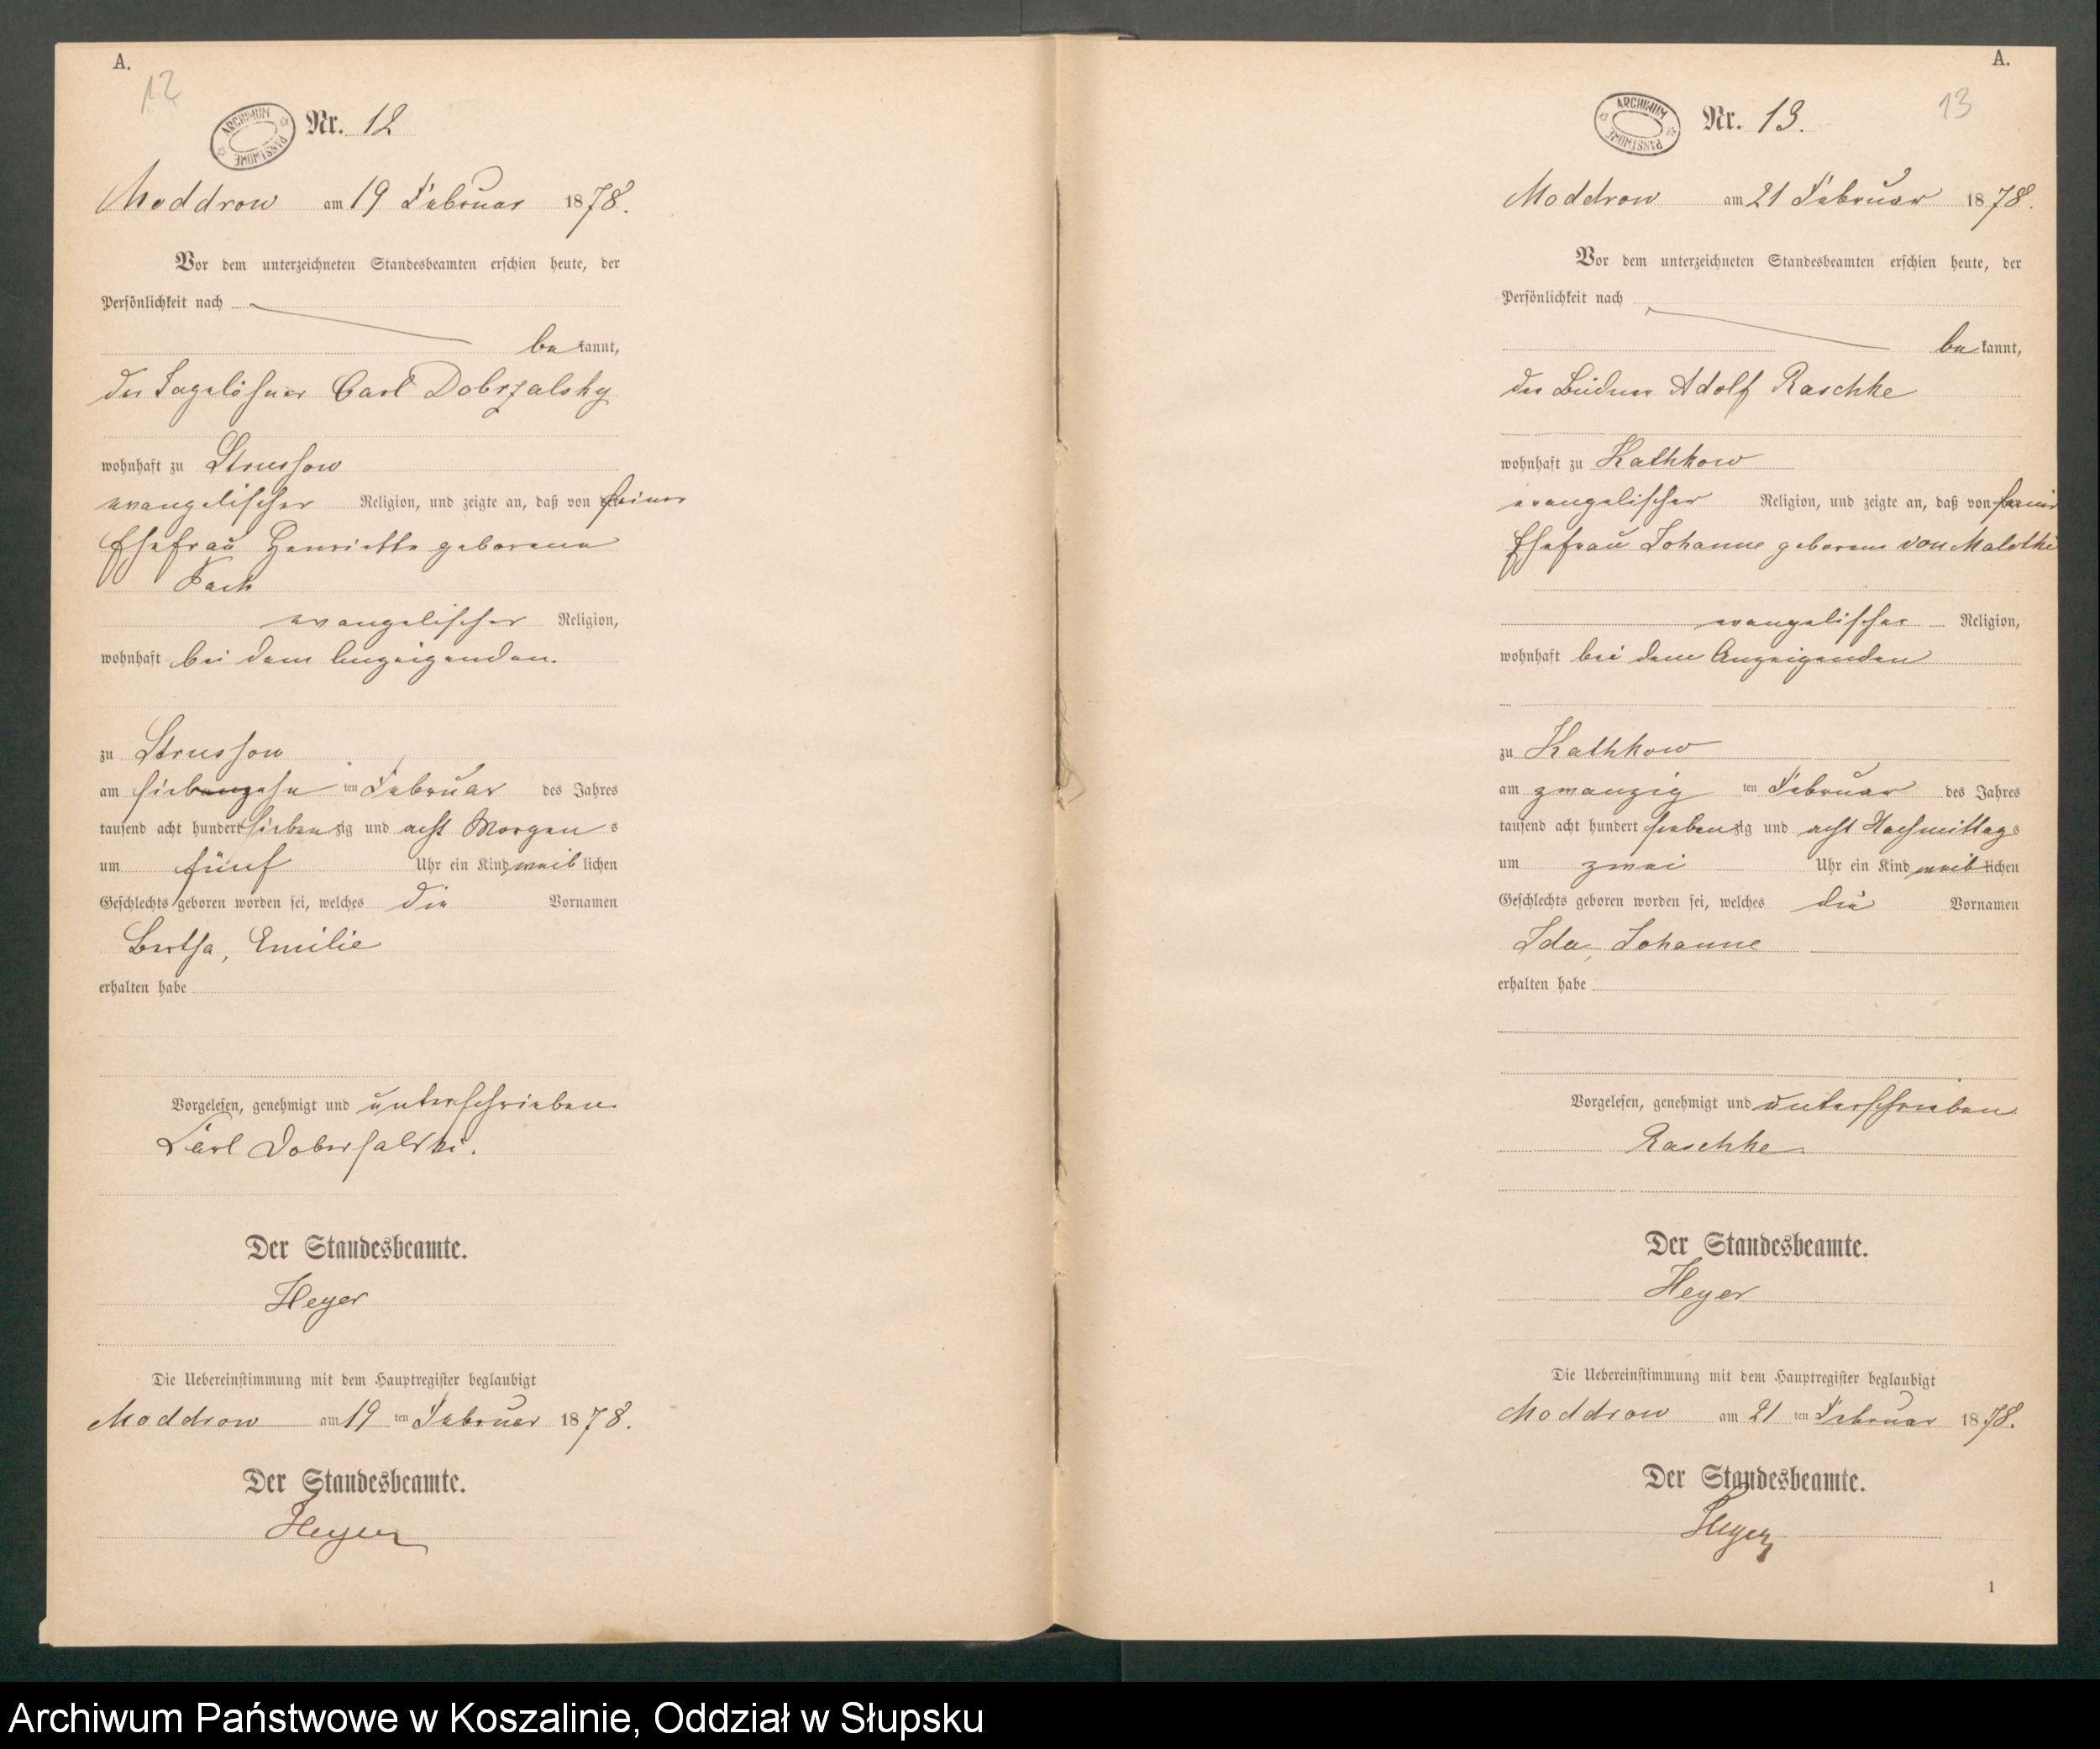 A.
12
ARCHIWUM PAŃSTWOWE
Nr. 12
Moddrow am 19 Februar 1878.
Vor dem unterzeichneten Standesbeamten erschien heute, der
Persönlichkeit nach
bekannt,
der Tagelöhner Carl Dobrzalsky
wohnhaft zu Strussow
evangelischer Religion, und zeigte an, daß von seiner
Ehefrau Henriette geborene
evangelischer Religion,
wohnhaft bei dem Anzeigenden.
zu Strussow
am siebenzehnten Februar des Jahres
tausend acht hundert siebenzig und acht Morgens
um fünf Uhr ein Kind weiblichen
Geschlechts geboren worden sei, welches die Vornamen
Bertha, Emilie
erhalten habe
Vorgelesen, genehmigt und unterschrieben.
Karl Dobersalski.
Der Standesbeamte.
Heyer
Die Uebereinstimmung mit dem Hauptregister beglaubigt
Moddrow am 19 ten Februar 1878.
Der Standesbeamte.
Heyer
A.
13
ARCHIWUM PAŃSTWOWE
Nr. 13.
Moddrow am 21 Februar 1878.
Vor dem unterzeichneten Standesbeamten erschien heute, der
Persönlichkeit nach
bekannt,
der Büdner Adolf Raschke
wohnhaft zu Kathkow
evangelischer Religion, und zeigte an, daß von seiner
Ehefrau Johanne geborene von Malotki
evangelischer Religion,
wohnhaft bei dem Anzeigenden
zu Kathkow
am zwanzig ten Februar des Jahres
tausend acht hundert siebenzig und acht Nachmittags
um zwei Uhr ein Kind weiblichen
Geschlechts geboren worden sei, welches die Vornamen
Ida, Johanne
erhalten habe
Vorgelesen, genehmigt und unterschrieben
Raschke
Der Standesbeamte.
Heyer
Die Uebereinstimmung mit dem Hauptregister beglaubigt
Moddrow am 21 ten Februar 1878.
Der Standesbeamte.
Heyer
1
Archiwum Państwowe w Koszalinie, Oddział w Słupsku